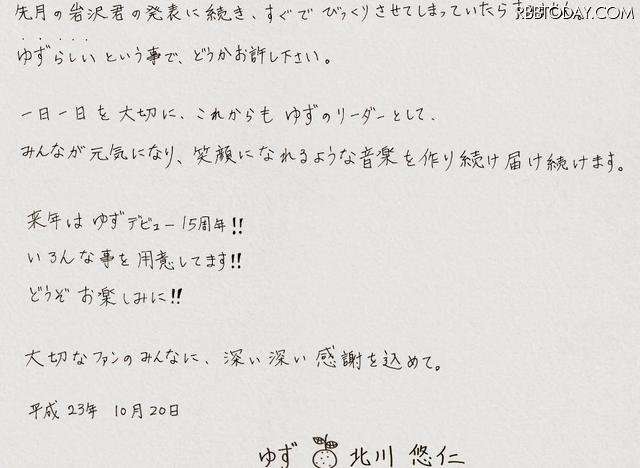 RBBTODAY.COM
先月の岩沢君の発表に続き、すぐでびっくりさせてしまっていたら
ゆずらしいという事で、どうかお許し下さい。
一日一日を大切に、これからもゆずのリーダーとして、
みんなが元気になり、笑顔になれるような音楽を作り続け届け続けます。
来年はゆずデビュー15周年!!
いろんな事を用意してます!!
どうぞお楽しみに!!
大切なファンのみんなに、深い深い感謝を込めて。
平成23年 10月20日
ゆず 北川 悠仁